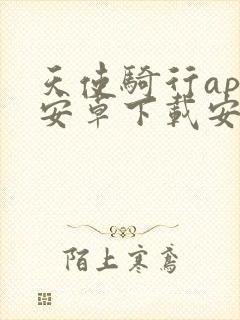 天使騎行ap
安卓下載安
陌上寒鸞